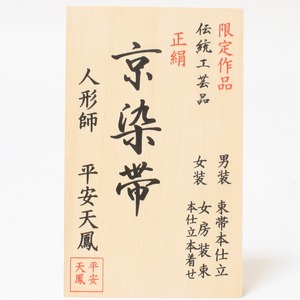 限定作品
伝統工芸品
正絹
男装 束帯本仕立
女装 女房装束
本仕立本着せ
京染帯
人形師 平安天鳳
平安
天鳳